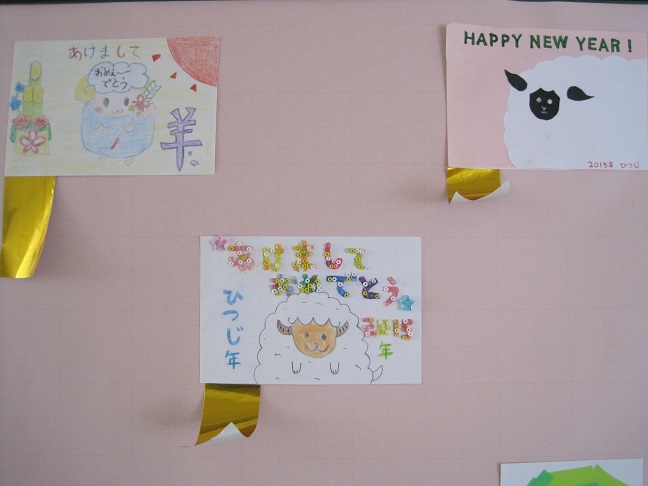 あけまして
おめぇ〜
でとう
羊
HAPPY NEW YEAR!
2015年 ひつじ
あけまして
おめでとう
2015
年
ひつじ年